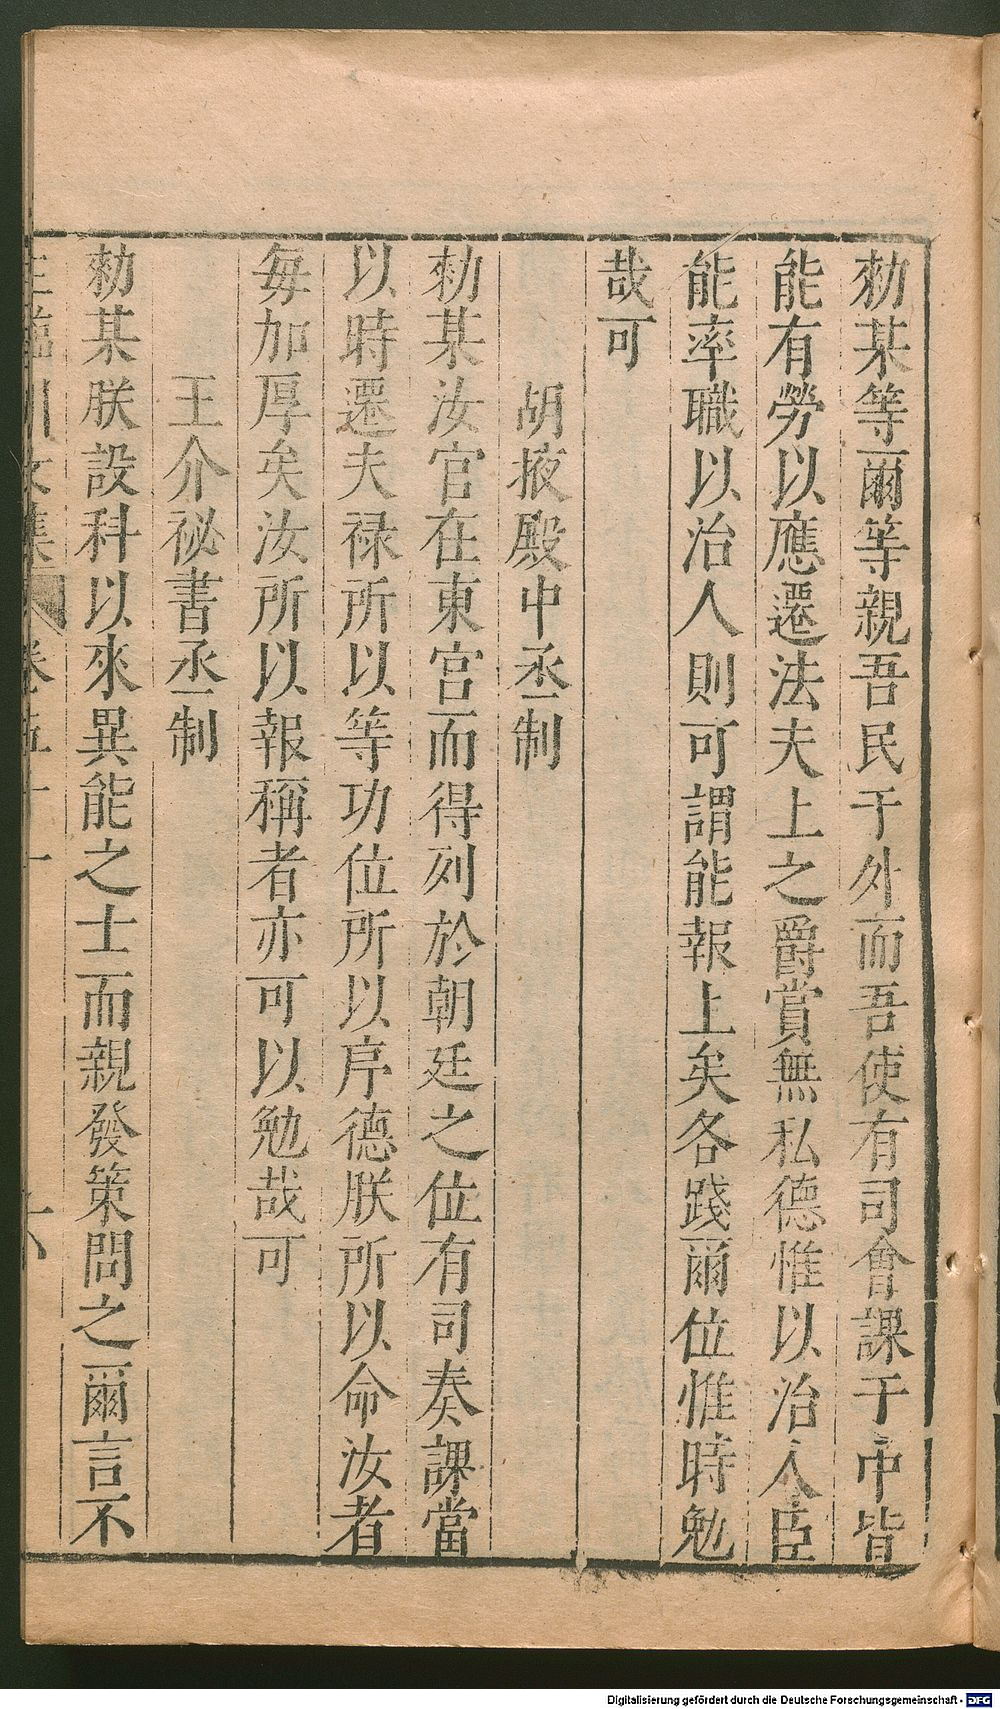 勑某等爾等親吾民于外而吾使有司會課于中皆
能有勞以應遷法夫上之爵賞無私德惟以治人臣
能率職以治人則可謂能報上矣各踐爾位惟時勉
哉可
胡掖殿中丞制
勑某汝官在東宮而得列於朝廷之位有司奏課當
以時遷夫祿所以等功位所以序德朕所以命汝者
每加厚矣汝所以報稱者亦可以勉哉可
王介祕書丞制
勑某朕設科以來異能之士而親發策問之爾言不
王臨川文集 卷五十一 十八
Digitalisierung gefördert durch die Deutsche Forschungsgemeinschaft - DFG